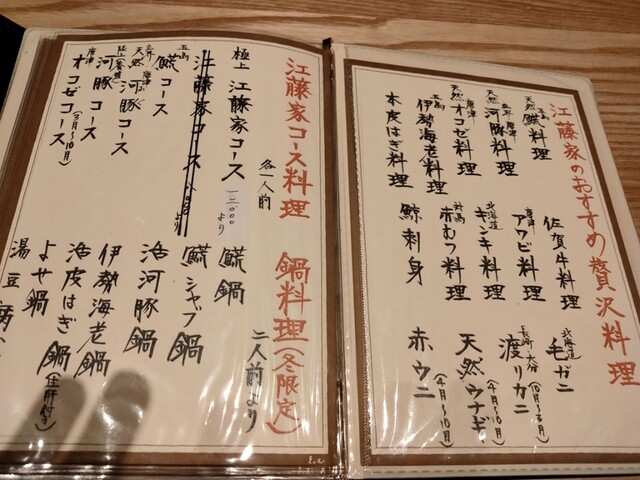 江藤家のおすすめ贅沢料理
五島
天然 鱚料理
唐津
天然 河豚料理
唐津
天然オコゼ料理
五島
伊勢海老料理
本皮はぎ料理
佐賀牛料理
唐津
アワビ料理
北海道
キンキ料理
対馬
赤むつ料理
鯨刺身
北海道
毛ガニ
渡リカニ
(10月〜3月)
天然ウナギ
(4月〜10月)
赤ウニ
(4月〜10月)
江藤家コース料理
各一人前
極上 江藤家コース
一二、〇〇〇より
江藤家コース
五島
コース
天然河豚コース
河豚コース
唐津
オコゼコース
鍋料理(冬限定)
二人前より
鍋
シャブ鍋
活河豚鍋
伊勢海老鍋
活皮はぎ鍋
よせ鍋
湯豆腐